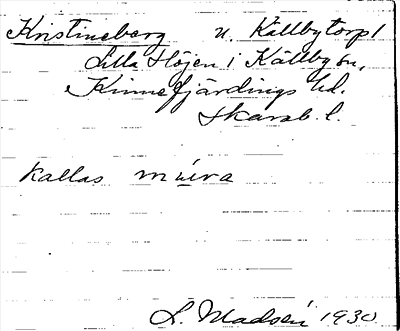 Kristineberg u. Källbytorp 1
Lilla Höjen i Källby sn,
Kinnefjärdings hd.
Skarab. l.
kallas múra
L. Madsén 1930